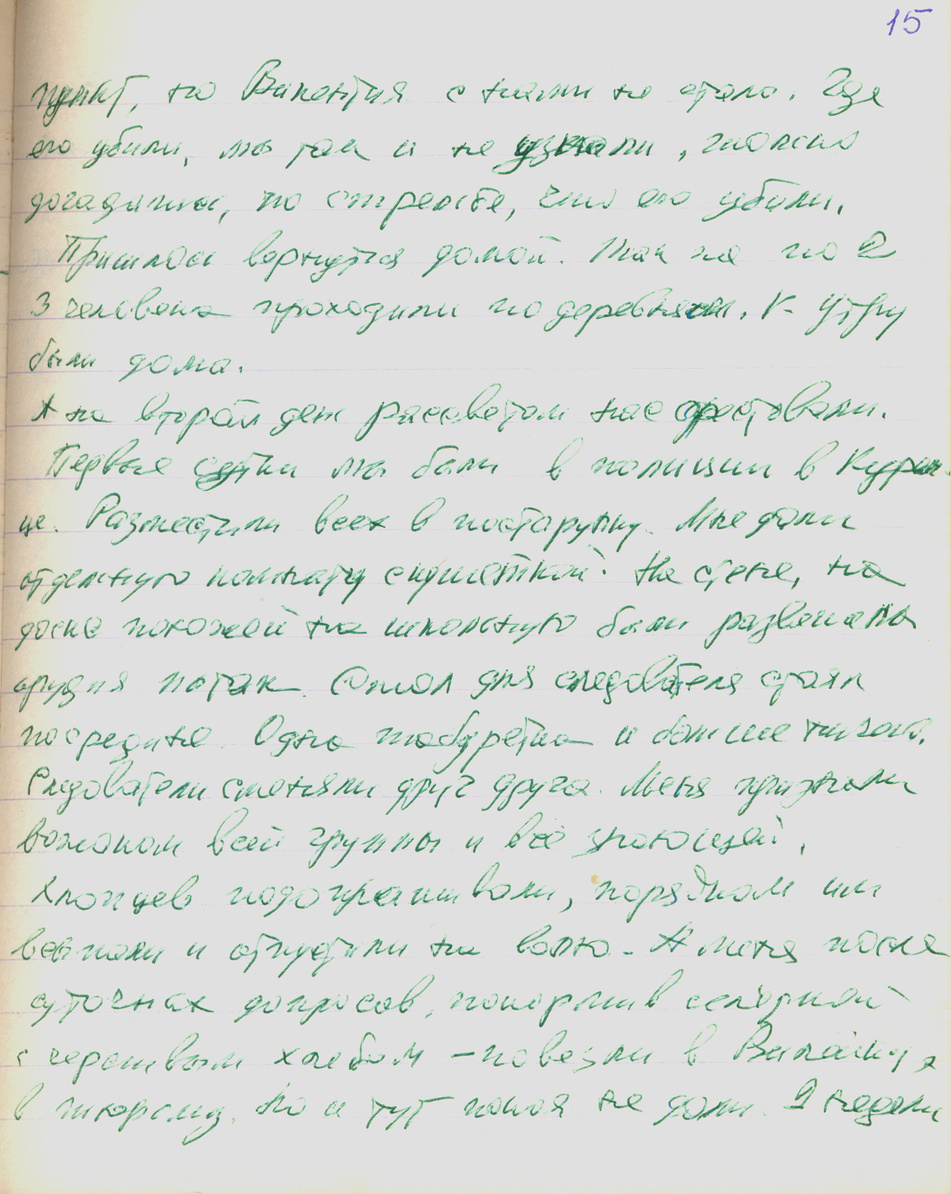 15
пункт, но Викентия с нами не стало. Где
его убили, мы так и не узнали, можно
догадатся, по стрельбе, что его убили.
Пришлось вернутся домой. Так же по 2
3 человека проходили по деревням. К утру
были дома.
А на второй ден рассветом нас арестовали.
Первые сутки мы были в полиции в Курен-
це. Разместили всех в постарунку. Мне дали
отдельную комнату с кушеткой. На стене, на
доске похожей на школьную были развешаны
орудия пыток. Стол для следователя стоял
посредине. Одна табуретка и больше ничего.
Следователи сменяли друг друга. Меня признали
вожаком всей группы и всё знающей.
Хлопцев подопрашивали, порядком им
всыпали и отпустили на волю. А меня после
суточных допросов, покормив селёдкой
с черствым хлебом – повезли в Вилейку,
в тюрьму. Но и тут покоя не дали. 2 недели